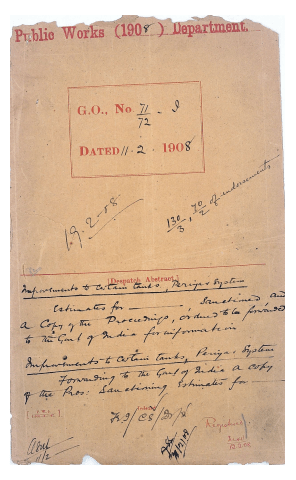 Public Works (1908) Department.
G.O., No. 71/72 - I
DATED 11 - 2 - 1908
19-2-08
130/3, 70/2 of endorsements
[Despatch Abstract.]
Improvements to certain tanks, Periyar System
Estimates for ——— Sanctioned and
a Copy of the Proceedings, ordered to be forwarded
to the Govt of India for information
Improvements to certain tanks, Periyar System
Forwarding to the Govt of India a copy
of the Pros: Sanctioning Estimates for —
Registered